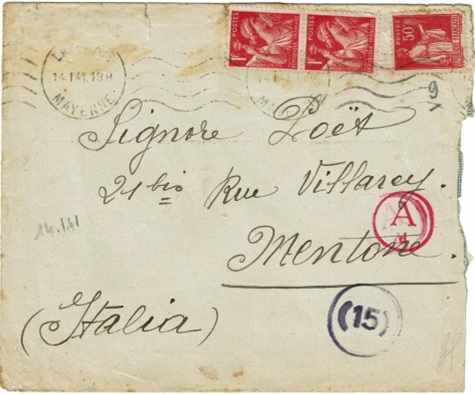 POSTES 1F POSTES 1F POSTES 50c
14 1 41. 19H
MAYENNE
9
Signore Zoët
21 bis Rue Villarey.
14.1.41
A
Mentone
(15)
(Italia)